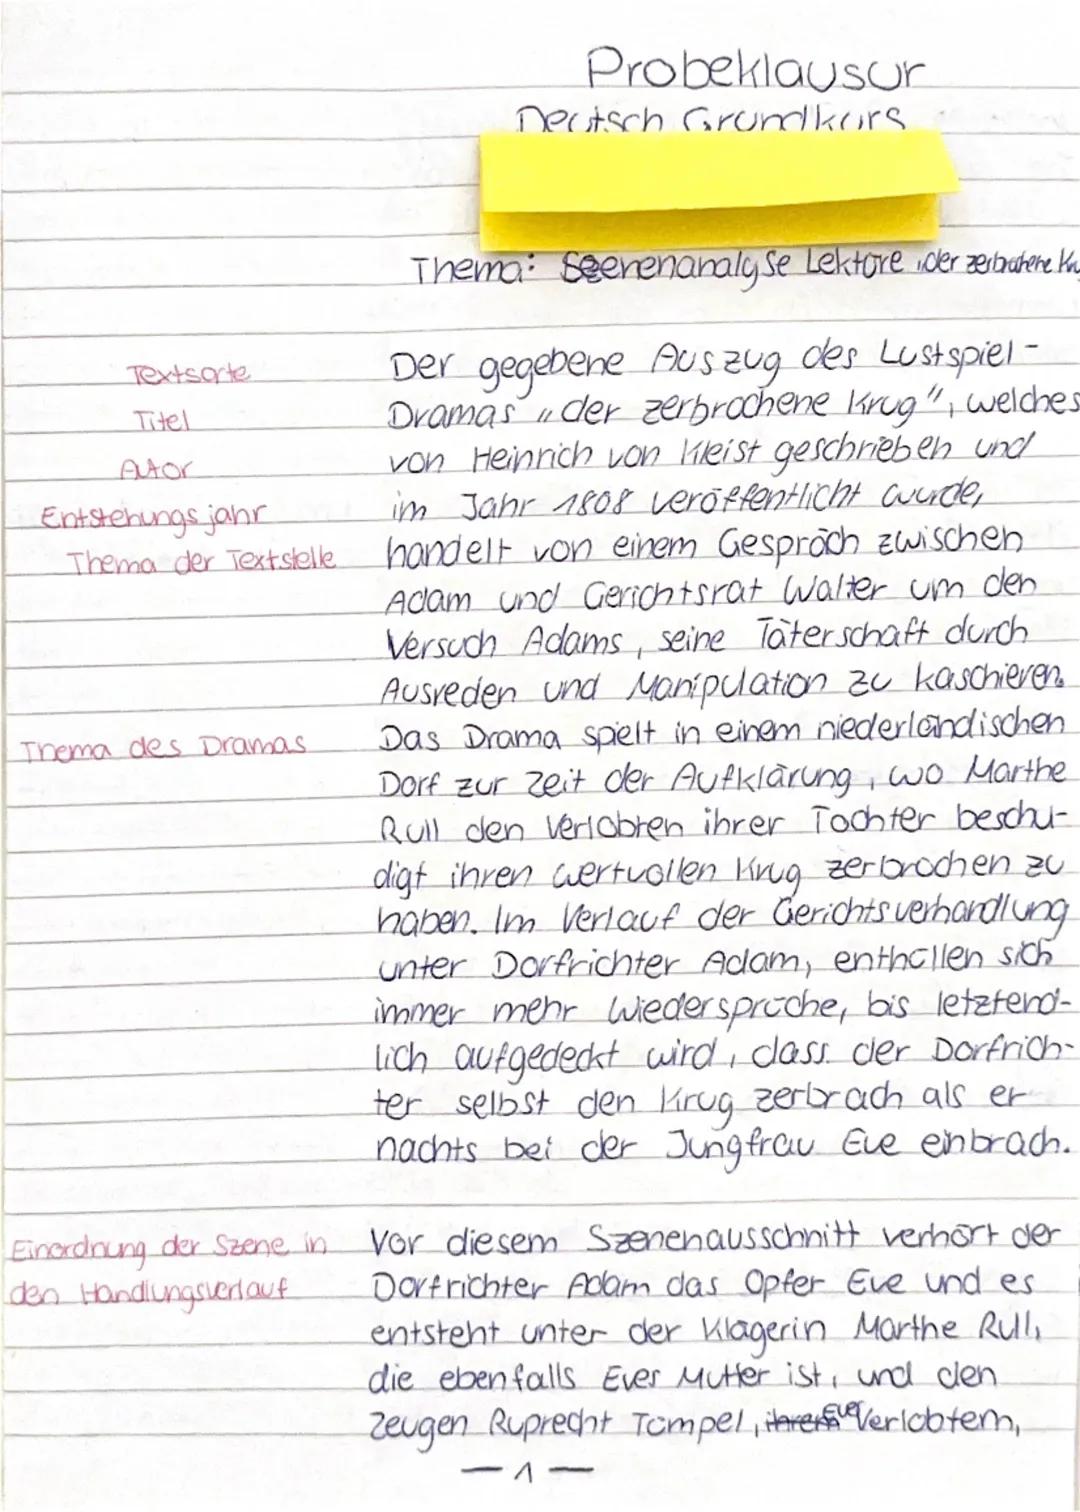 Probeklausur
Deutsch Grundkurs
Thema: Szenenanalyse Lektüre „der zerbrochene
Textsorte
Titel
Autor
Entstehungsjahr
Thema der Textstelle
Der gegebene Auszug des Lustspiel-
Dramas „der zerbrochene Krug“, welches
von Heinrich von Kleist geschrieben und
im Jahr 1808 veröffentlicht wurde,
handelt von einem Gespräch zwischen
Adam und Gerichtsrat Walter um den
Versuch Adams, seine Täterschaft durch
Ausreden und Manipulation zu kaschieren.
Thema des Dramas
Das Drama spielt in einem niederländischen
Dorf zur Zeit der Aufklärung, wo Marthe
Rull den Verlobten ihrer Tochter beschu-
digt ihren wertvollen Krug zerbrochen zu
haben. Im Verlauf der Gerichtsverhandlung
unter Dorfrichter Adam, enthüllen sich
immer mehr Wiedersprüche, bis letztend-
lich aufgedeckt wird, dass der Dorfrich-
ter selbst den Krug zerbrach als er
nachts bei der Jungfrau Eve einbrach.
Einordnung der Szene in
den Handlungsverlauf
Vor diesem Szenenausschnitt verhört der
Dorfrichter Adam das Opfer Eve und es
entsteht unter der Klägerin Marthe Rull,
die ebenfalls Eves Mutter ist, und den
Zeugen Ruprecht Tümpel, Eves Verlobtem,
— 1 —